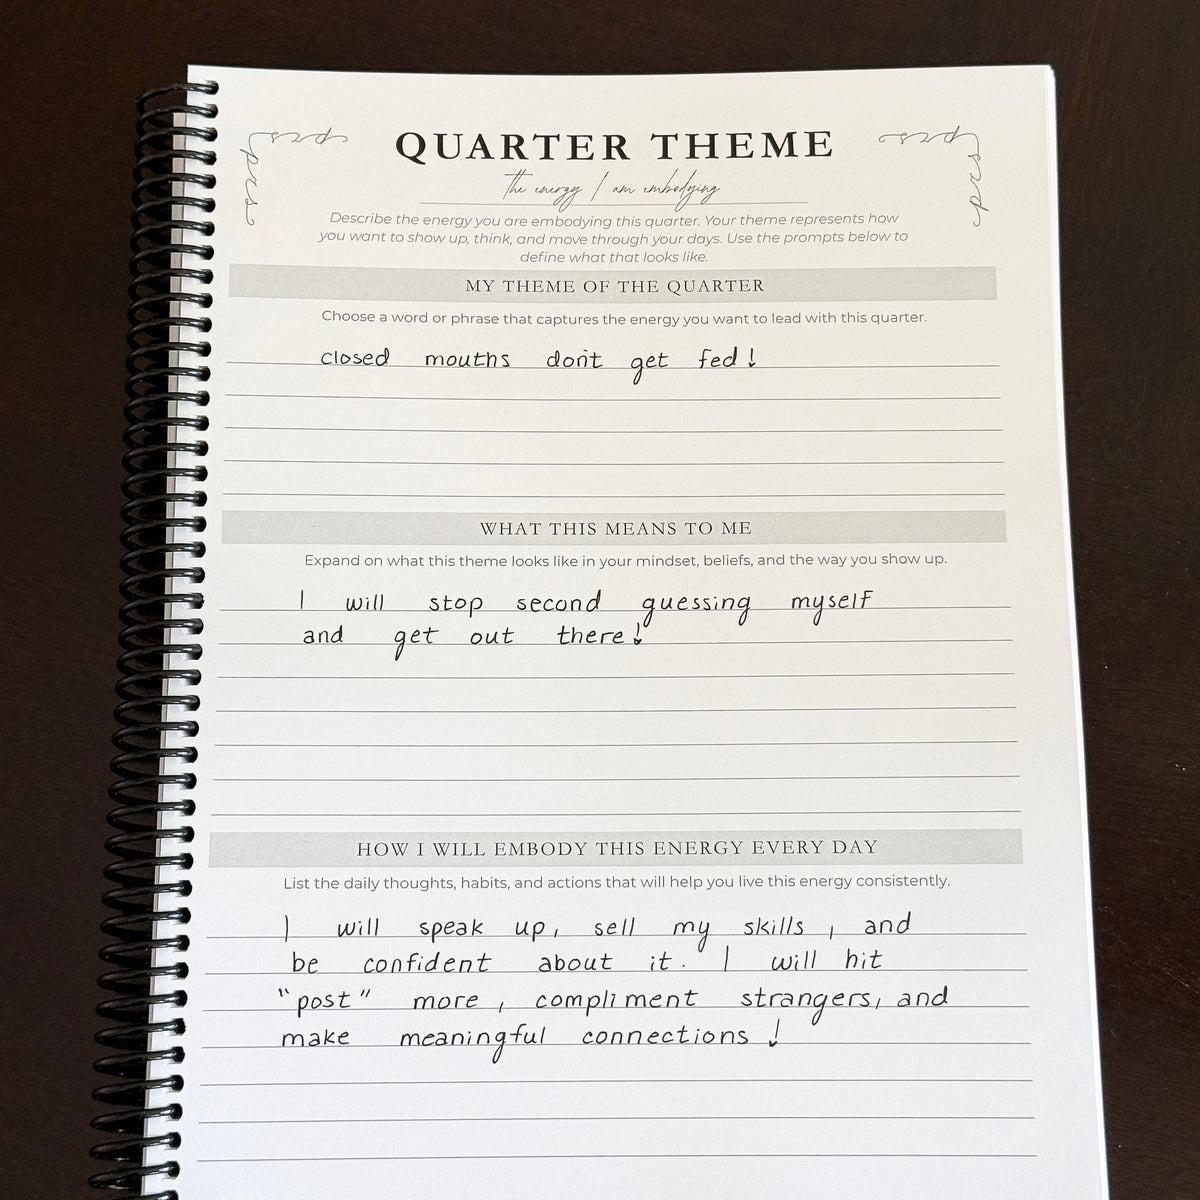 prs prs
prs prs
QUARTER THEME
the energy I am embodying
Describe the energy you are embodying this quarter. Your theme represents how
you want to show up, think, and move through your days. Use the prompts below to
define what that looks like.
MY THEME OF THE QUARTER
Choose a word or phrase that captures the energy you want to lead with this quarter.
closed mouths don't get fed!
WHAT THIS MEANS TO ME
Expand on what this theme looks like in your mindset, beliefs, and the way you show up.
I will stop second guessing myself
and get out there!
HOW I WILL EMBODY THIS ENERGY EVERY DAY
List the daily thoughts, habits, and actions that will help you live this energy consistently.
I will speak up, sell my skills, and
be confident about it. I will hit
"post" more, compliment strangers, and
make meaningful connections!